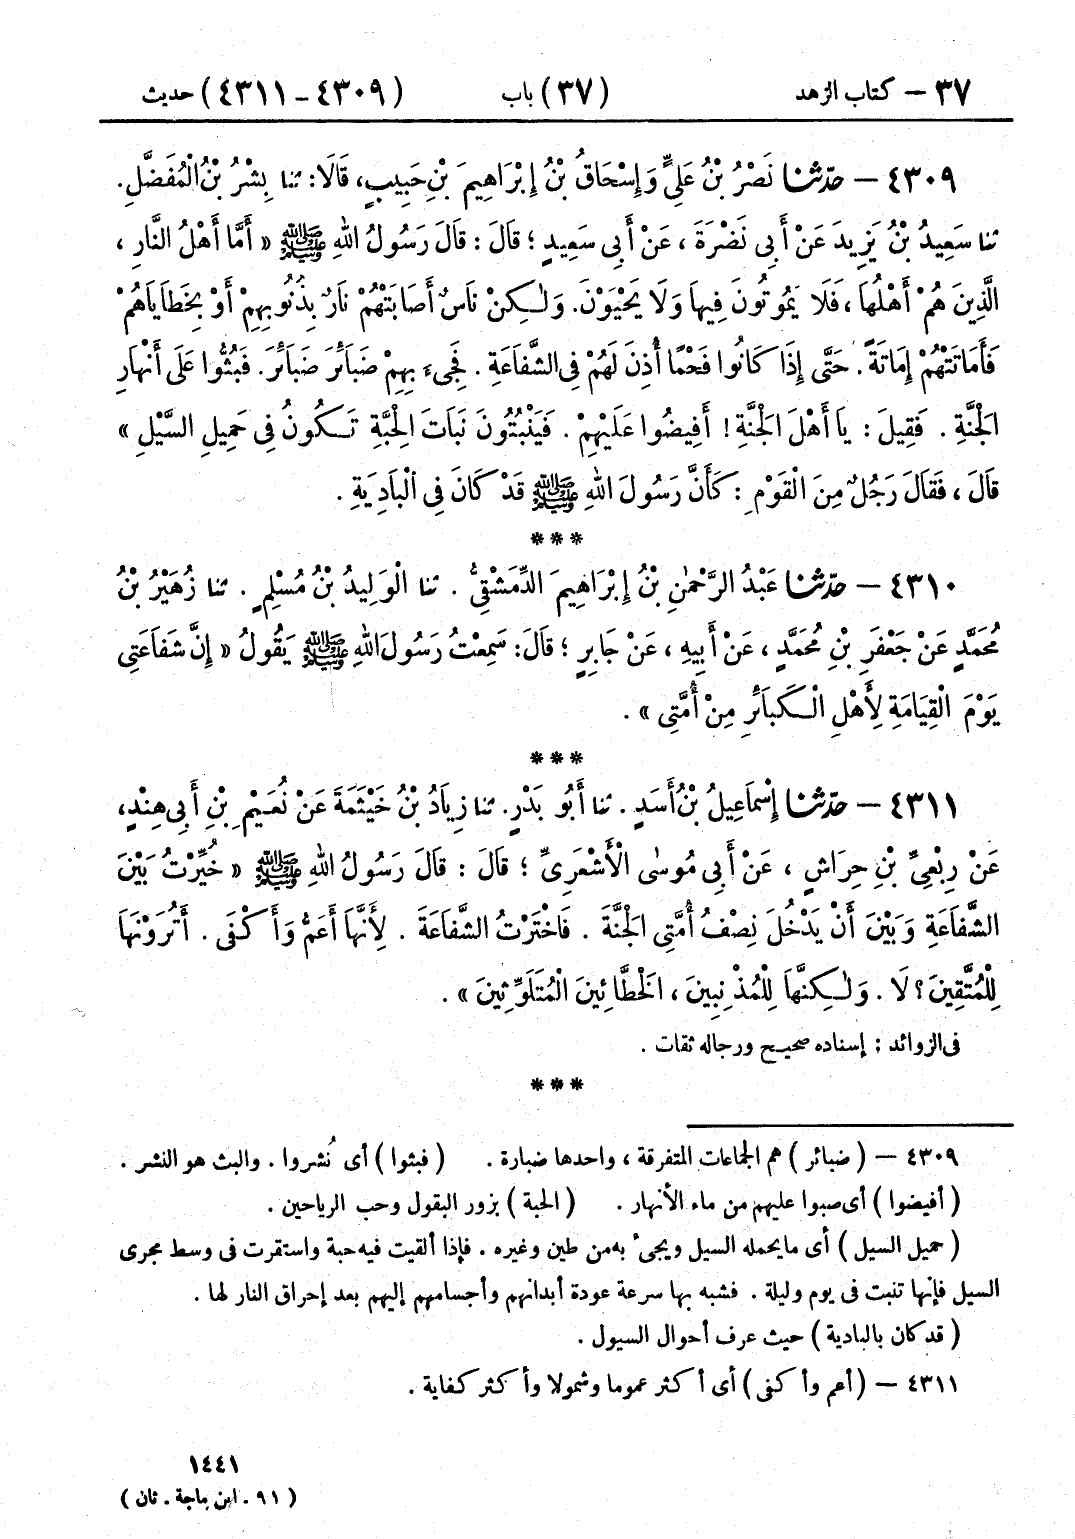 ٣٧ – كتاب الزهد (٣٧) باب (٤٣٠٩ – ٤٣١١) حديث
٤٣٠٩ – حدّثنا نَصْرُ بْنُ عَلِيٍّ وَإِسْحَاقُ بْنُ إِبْرَاهِيمَ بْنِ حَبِيبٍ، قَالَا: ثنا بِشْرُ بْنُ الْمُفَضَّلِ.
ثنا سَعِيدُ بْنُ يَزِيدَ عَنْ أَبِي نَضْرَةَ، عَنْ أَبِي سَعِيدٍ؛ قَالَ: قَالَ رَسُولُ اللهِ ﷺ « أَمَّا أَهْلُ النَّارِ،
الَّذِينَ هُمْ أَهْلُهَا، فَلَا يَمُوتُونَ فِيهَا وَلَا يَحْيَوْنَ. وَلٰكِنْ نَاسٌ أَصَابَتْهُمْ نَارٌ بِذُنُوبِهِمْ أَوْ بِخَطَايَاهُمْ
فَأَمَاتَتْهُمْ إِمَاتَةً. حَتَّى إِذَا كَانُوا فَحْمًا أُذِنَ لَهُمْ فِي الشَّفَاعَةِ. فَجِيءَ بِهِمْ ضَبَائِرَ ضَبَائِرَ. فَبُثُّوا عَلَى أَنْهَارِ
الْجَنَّةِ. فَقِيلَ: يَا أَهْلَ الْجَنَّةِ! أَفِيضُوا عَلَيْهِمْ. فَيَنْبُتُونَ نَبَاتَ الْحِبَّةِ تَكُونُ فِي حَمِيلِ السَّيْلِ »
قَالَ، فَقَالَ رَجُلٌ مِنَ الْقَوْمِ: كَأَنَّ رَسُولَ اللهِ ﷺ قَدْ كَانَ فِي الْبَادِيَةِ.
***
٤٣١٠ – حدّثنا عَبْدُ الرَّحْمٰنِ بْنُ إِبْرَاهِيمَ الدِّمَشْقِيُّ. ثنا الْوَلِيدُ بْنُ مُسْلِمٍ. ثنا زُهَيْرُ بْنُ
مُحَمَّدٍ عَنْ جَعْفَرِ بْنِ مُحَمَّدٍ، عَنْ أَبِيهِ، عَنْ جَابِرٍ؛ قَالَ: سَمِعْتُ رَسُولَ اللهِ ﷺ يَقُولُ « إِنَّ شَفَاعَتِي
يَوْمَ الْقِيَامَةِ لِأَهْلِ الْكَبَائِرِ مِنْ أُمَّتِي ».
***
٤٣١١ – حدّثنا إِسْمَاعِيلُ بْنُ أَسَدٍ. ثنا أَبُو بَدْرٍ. ثنا زِيَادُ بْنُ خَيْثَمَةَ عَنْ نُعَيْمِ بْنِ أَبِي هِنْدٍ،
عَنْ رِبْعِيِّ بْنِ حِرَاشٍ، عَنْ أَبِي مُوسٰى الْأَشْعَرِيِّ؛ قَالَ: قَالَ رَسُولُ اللهِ ﷺ « خُيِّرْتُ بَيْنَ
الشَّفَاعَةِ وَبَيْنَ أَنْ يَدْخُلَ نِصْفُ أُمَّتِي الْجَنَّةَ. فَاخْتَرْتُ الشَّفَاعَةَ. لِأَنَّهَا أَعَمُّ وَأَكْفَى. أَتُرَوْنَهَا
لِلْمُتَّقِينَ؟ لَا. وَلٰكِنَّهَا لِلْمُذْنِبِينَ، الْخَطَّائِينَ الْمُتَلَوِّثِينَ ».
فى الزوائد: إسناده صحيح ورجاله ثقات.
***
٤٣٠٩ – (ضبائر) هم الجماعات المتفرقة، واحدها ضبارة. (فبثوا) أى نُشروا. والبث هو النشر.
(أفيضوا) أى صبوا عليهم من ماء الأنهار. (الحبة) بزور البقول وحب الرياحين.
(حميل السيل) أى ما يحمله السيل ويجىء به من طين وغيره. فإذا ألقيت فيه حبة واستقرت فى وسط مجرى
السيل فإنها تنبت فى يوم وليلة. فشبه بها سرعة عودة أبدانهم وأجسامهم إليهم بعد إحراق النار لها.
(قد كان بالبادية) حيث عرف أحوال السيول.
٤٣١١ – (أعم وأكفى) أى أكثر عموما وشمولا وأكثر كفاية.
١٤٤١
(٩١ . ابن ماجة . ثان)